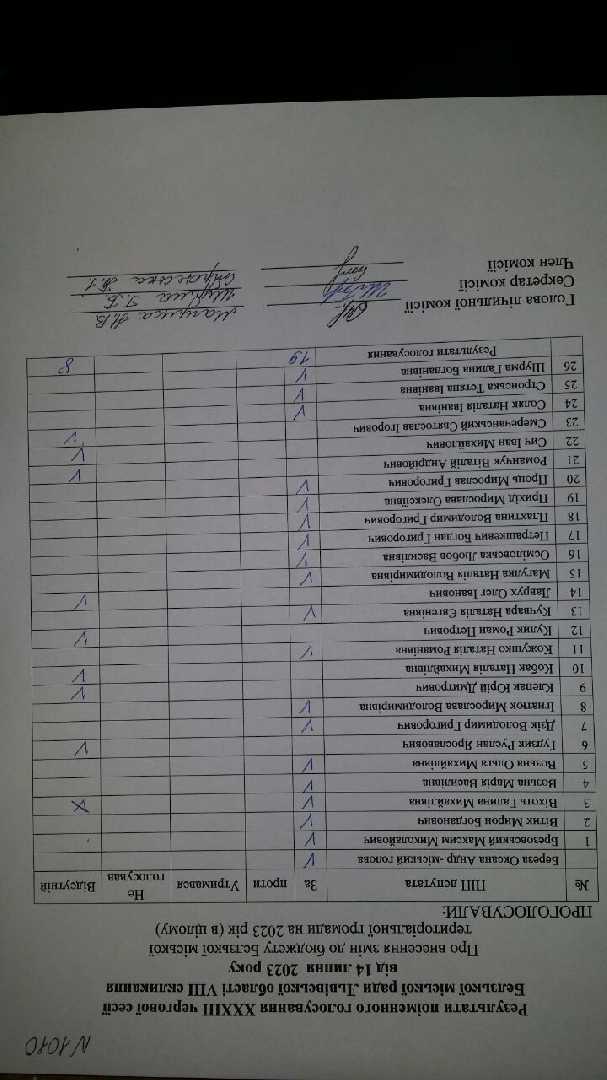 N 1010
Результати поіменного голосування XXXIII чергової сесії
Белзької міської ради Львівської області VIII скликання
від 14 липня 2023 року
Про внесення змін до бюджету Белзької міської
територіальної громади на 2023 рік (в цілому)
ПРОГОЛОСУВАЛИ:
№ ПІП депутата За проти Утримався Не голосував Відсутній
Береза Оксана Андр -міський голова V
1 Брезовський Максим Миколайович V
2 Вітик Мирон Богданович V
3 Віхоть Галина Михайлівна V
4 Возьна Марія Василівна V
5 Возьна Ольга Михайлівна V
6 Гудзик Руслан Ярославович V
7 Дзік Володимир Григорович V
8 Ігнатюк Мирослава Володимирівна V
9 Клепак Юрій Дмитрович V
10 Кобак Наталія Михайлівна V
11 Кожушко Наталія Романівна V
12 Кулик Роман Петрович V
13 Кучвара Наталія Євгенівна V
14 Лаврух Олег Іванович V
15 Магулка Наталія Володимирівна V
16 Осміловська Любов Василівна V
17 Петрашкевич Богдан Григорович V
18 Плахтина Володимир Григорович V
19 Прихід Мирослава Олексіївна V
20 Проць Мирослав Григорович V
21 Романчук Віталій Андрійович V
22 Сич Іван Михайлович V
23 Смеречанський Святослав Ігорович V
24 Соляк Наталія Іванівна V
25 Стронська Тетяна Іванівна V
26 Шурма Галина Богданівна V
Результати голосування 19 8
Голова лічильної комісії
Секретар комісії
Член комісії